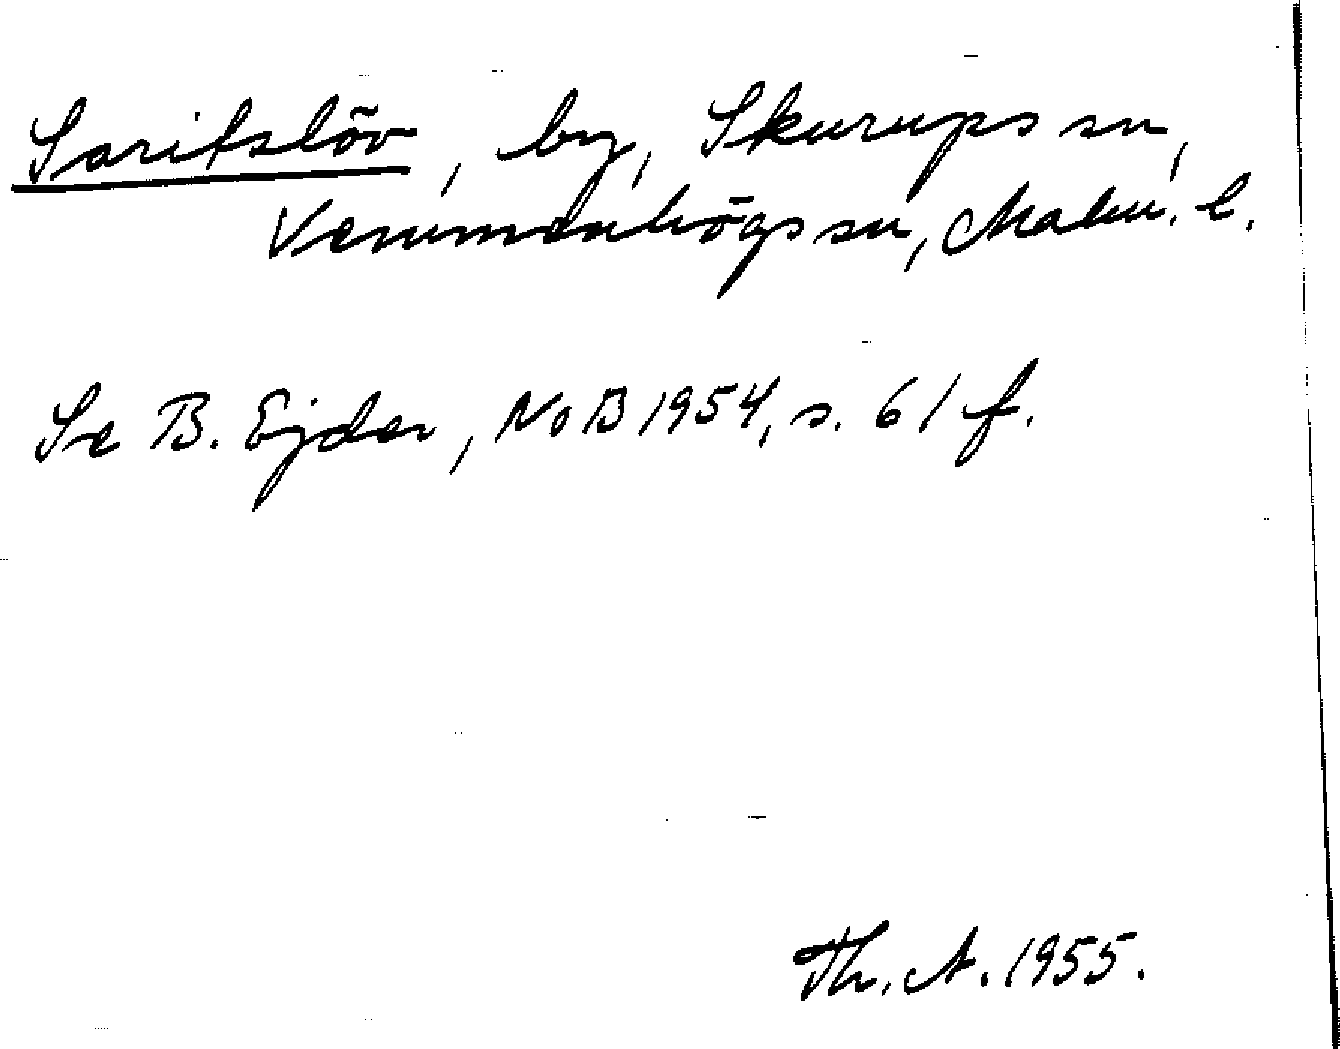 Saritslöv, by, Skurups sn,
Vemmenhögs sn, Malm. l.
Se B. Ejder, NoB 1954, s. 61 f.
Th. A. 1955.